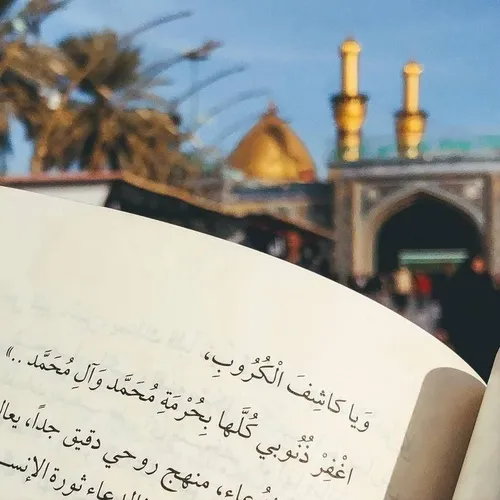 وَيا كاشِفَ الْكُرُوبِ،
اغْفِرْ ذُنُوبي كُلَّها بِحُرْمَةِ مُحَمَّد وَآلِ مُحَمَّد ..»
منهج روحي دقيق جداً،
ثورة